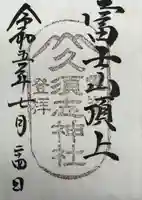 富士山頂上
久須志神社
登拝
令和五年七月
二四日